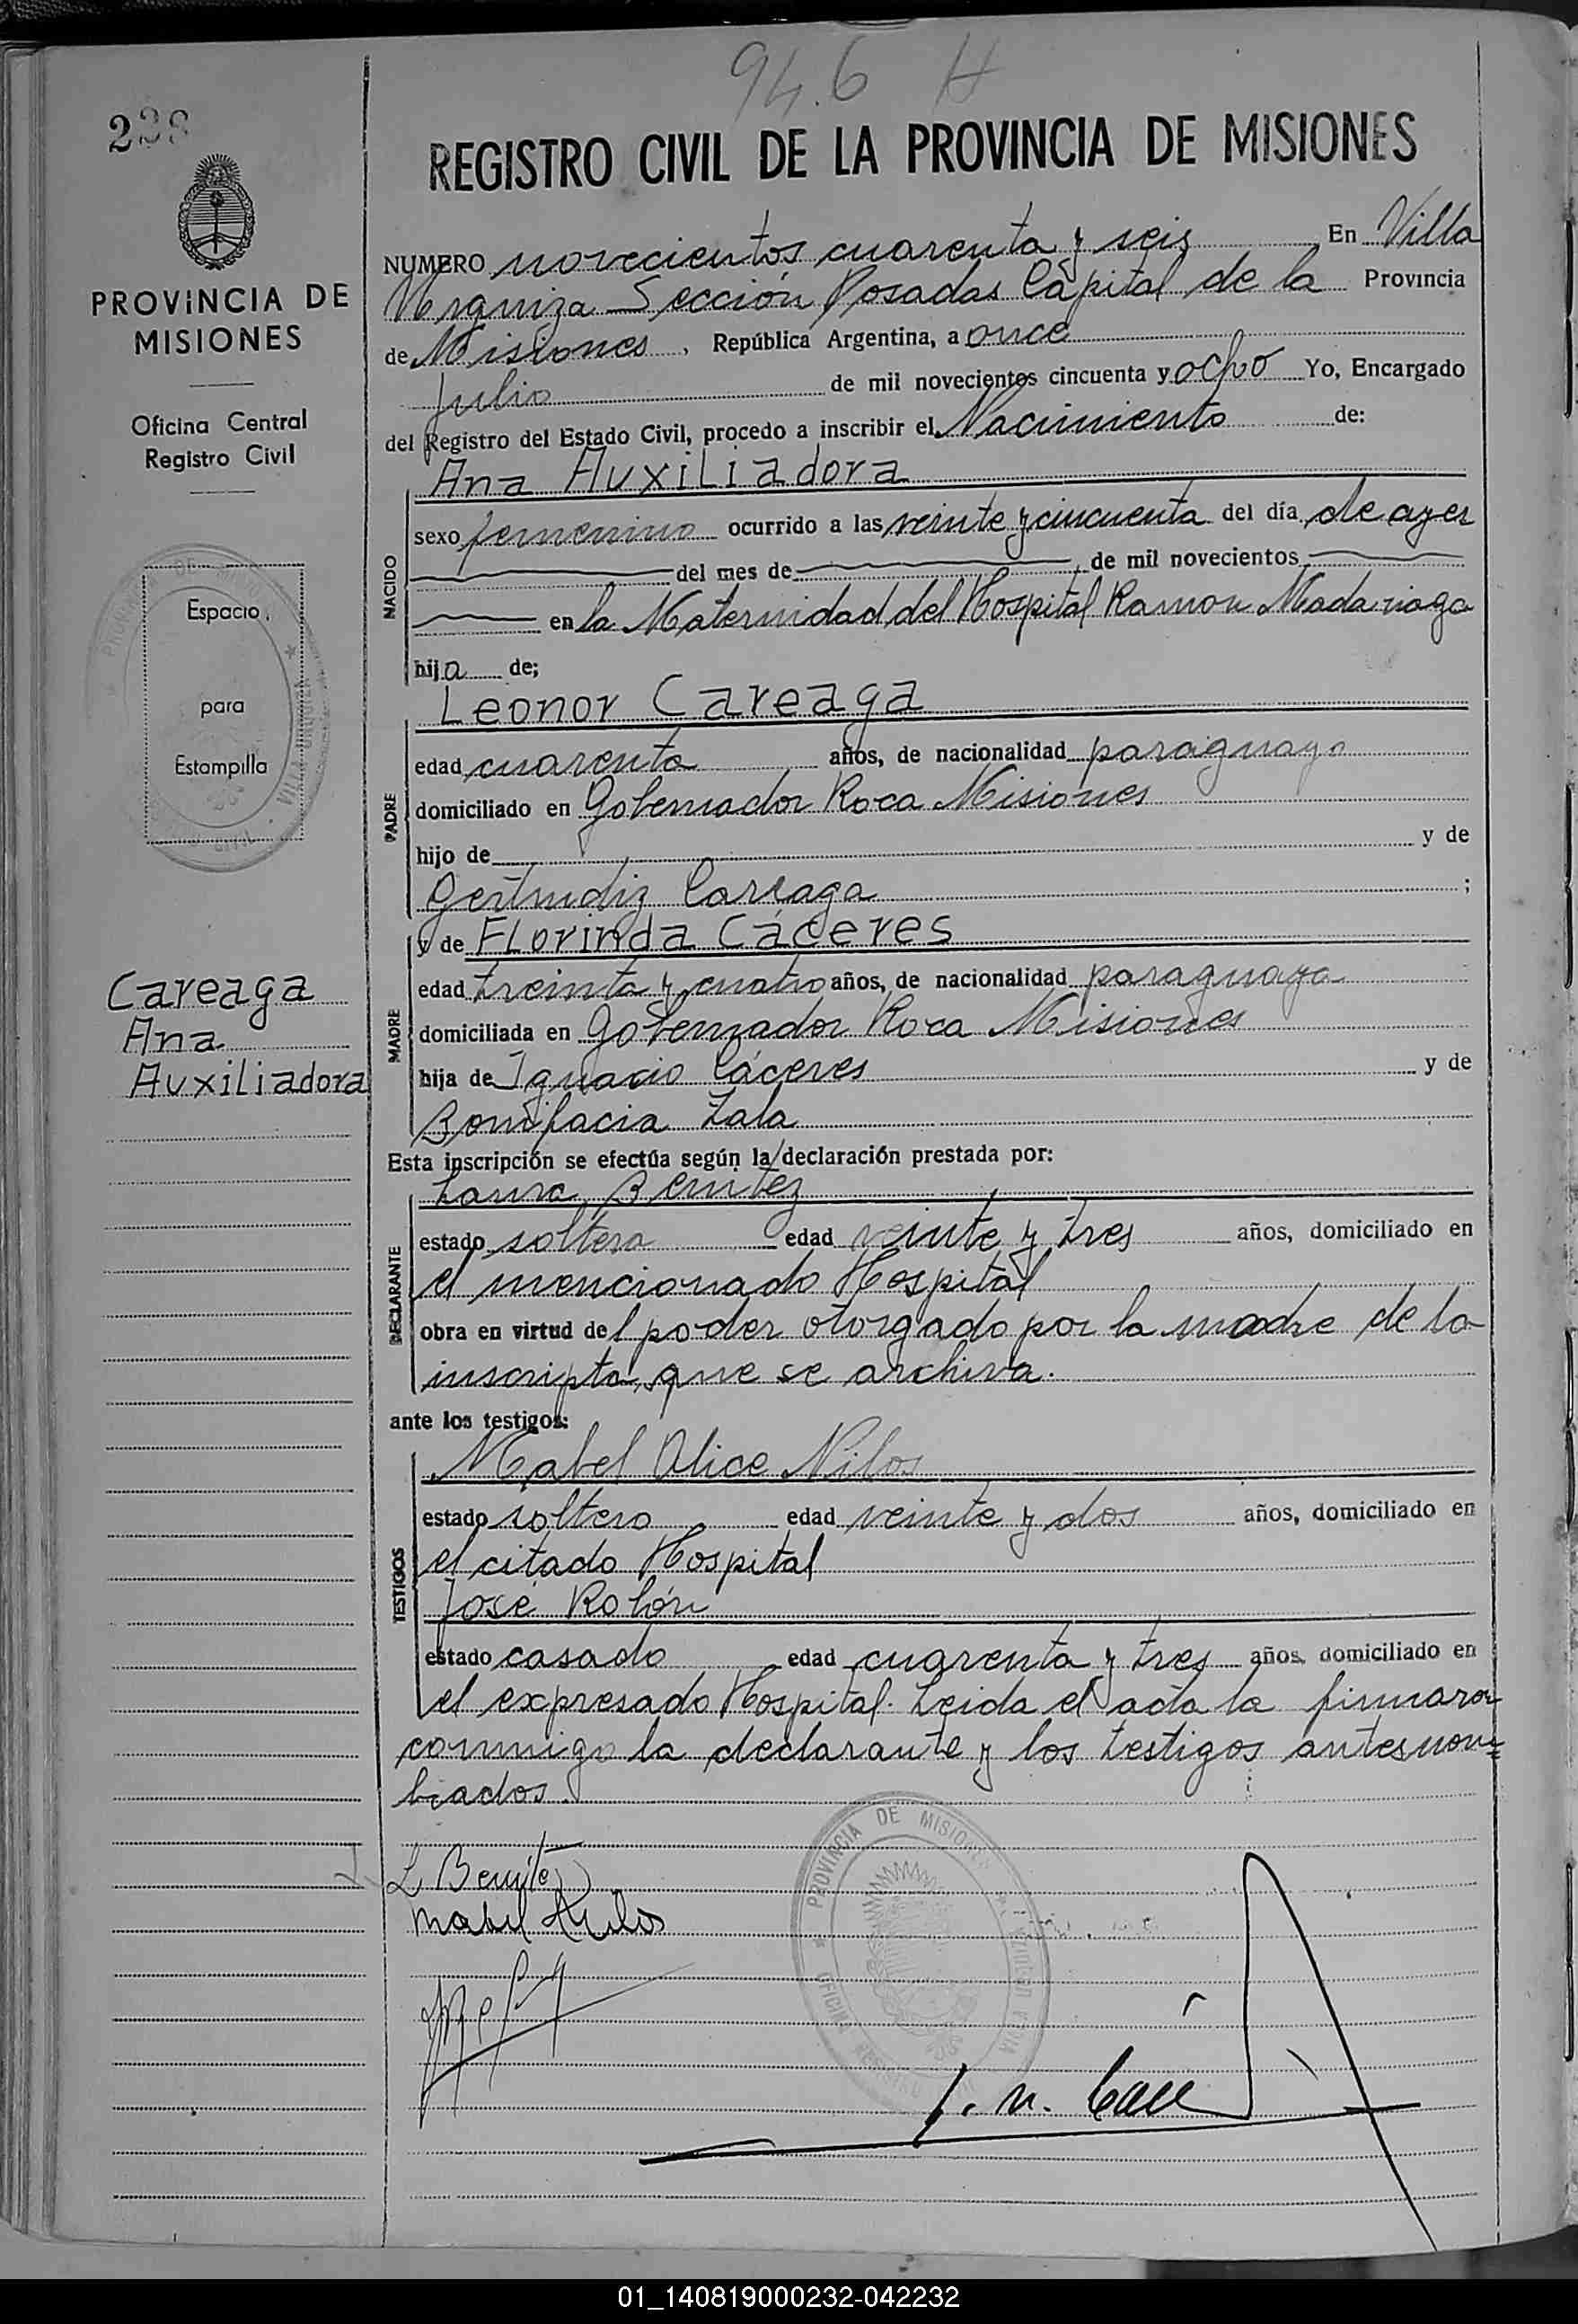 94.6 H
REGISTRO CIVIL DE LA PROVINCIA DE MISIONES
PROVINCIA DE
MISIONES
Oficina Central
Registro Civil
Espacio
para
Estampilla
Careaga
Ana
Auxiliadora
NUMERO novecientos cuarenta y seis En Villa
Urquiza Sección Posadas Capital de la Provincia
de Misiones, República Argentina, a once
Julio de mil novecientos cincuenta y ocho Yo, Encargado
del Registro del Estado Civil, procedo a inscribir el Nacimiento de:
Ana Auxiliadora
NACIDO
sexo femenino ocurrido a las veinte y cincuenta del día de ayer
del mes de , de mil novecientos
en la Maternidad del Hospital Ramon Madariaga
hija de;
Leonor Careaga
PADRE
edad cuarenta años, de nacionalidad paraguaya
domiciliado en Gobernador Roca Misiones
hijo de y de
Gertrudiz Careaga ;
y de Florinda Cáceres
MADRE
edad treinta y cuatro años, de nacionalidad paraguaya
domiciliada en Gobernador Roca Misiones
hija de Ignacio Cáceres y de
Bonifacia Zala
Esta inscripción se efectúa según la declaración prestada por:
Laura Benitez
DECLARANTE
estado soltera edad veinte y tres años, domiciliado en
el mencionado Hospital
obra en virtud del poder otorgado por la madre de la
inscripta, que se archiva.
ante los testigos:
Mabel Alice Nilos
TESTIGOS
estado soltera edad veinte y dos años, domiciliado en
el citado Hospital
José Rolón
estado casado edad cuarenta y tres años, domiciliado en
el expresado Hospital. Leida el acta la firmaron
conmigo la declarante y los testigos antesnom=
brados.
L Benitez
PROVINCIA DE MISIONES
01_140819000232-042232